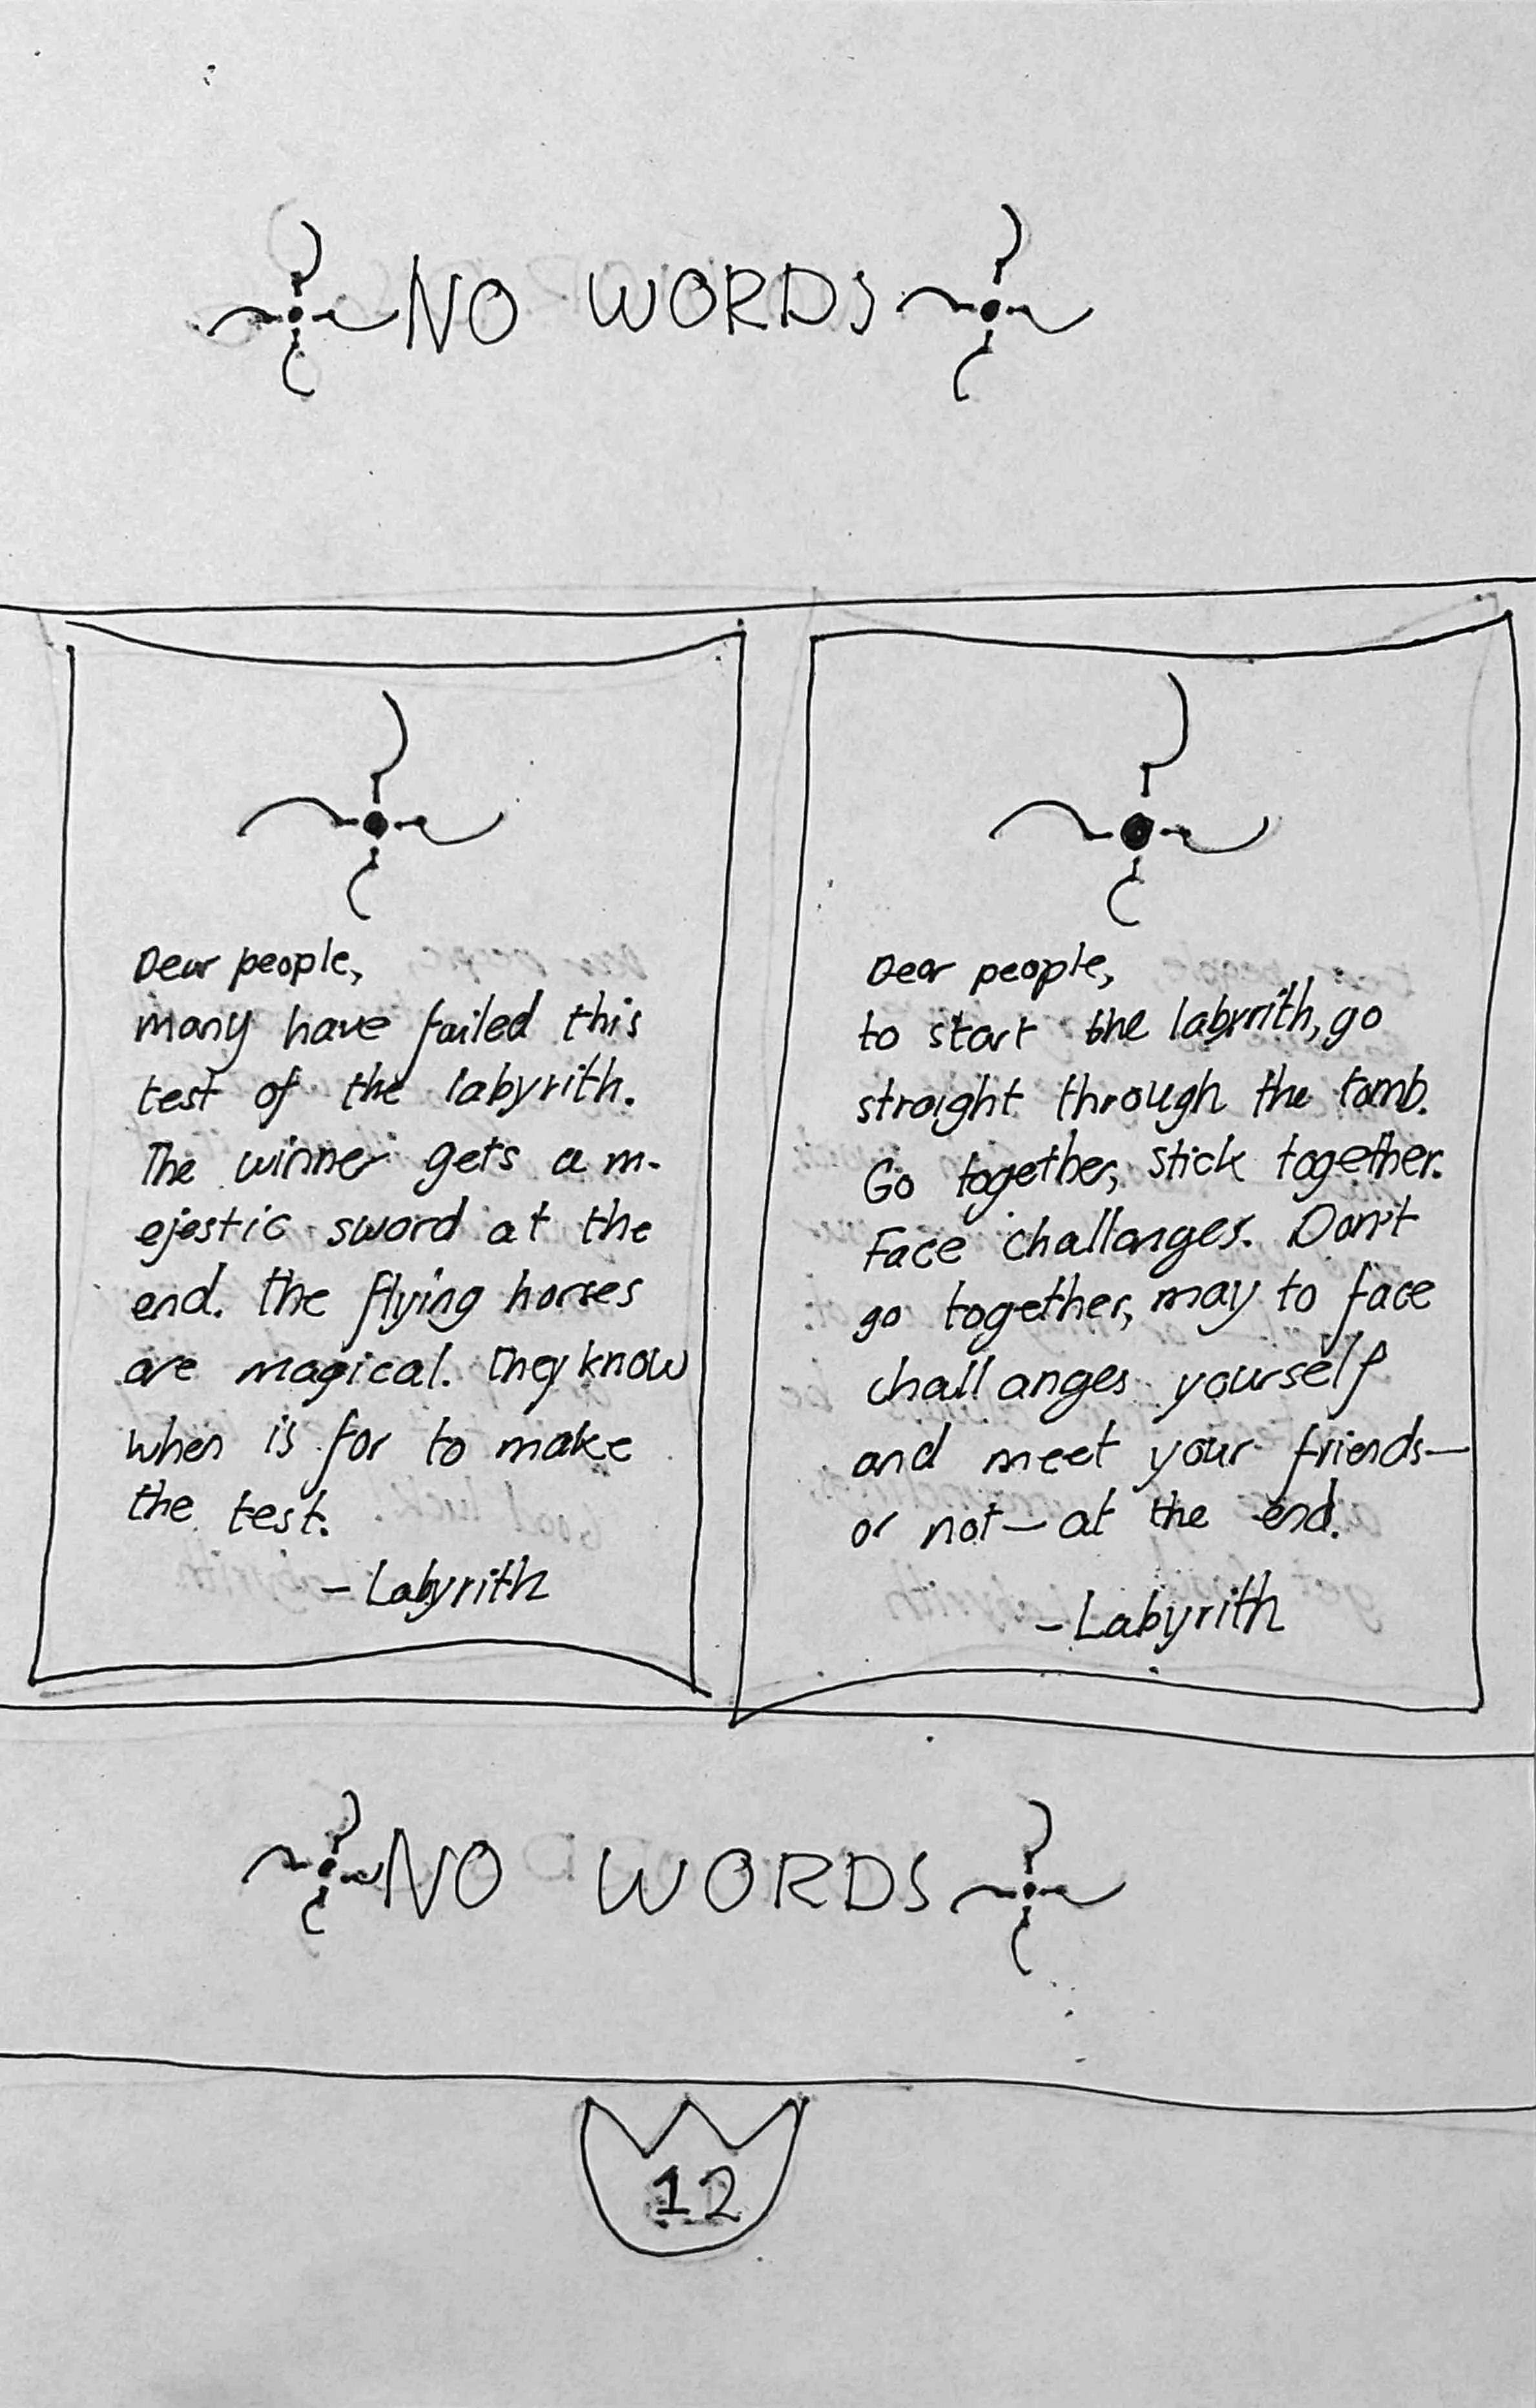 NO WORDS
Dear people,
many have failed this
test of the labyrith.
The winner gets a m-
ejestic sword at the
end. The flying horses
are magical. They know
when is for to make
the test.
- Labyrith
Dear people,
to start the labyrith, go
straight through the tomb.
Go together, stick together.
Face challanges. Don't
go together, may to face
challanges yourself
and meet your friends—
or not— at the end.
- Labyrith
NO WORDS
12